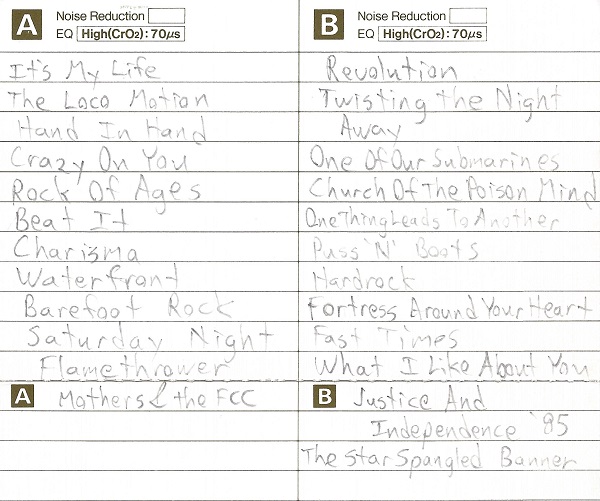 A Noise Reduction
EQ High(CrO2): 70µs
It's My Life
The Loco Motion
Hand In Hand
Crazy On You
Rock Of Ages
Beat It
Charisma
Waterfront
Barefoot Rock
Saturday Night
Flamethrower
A Mothers & the FCC
B Noise Reduction
EQ High(CrO2): 70µs
Revolution
Twisting the Night
Away
One Of Our Submarines
Church Of The Poison Mind
One Thing Leads To Another
Puss 'N' Boots
Hardrock
Fortress Around Your Heart
Fast Times
What I Like About You
B Justice And
Independence '85
The Star Spangled Banner